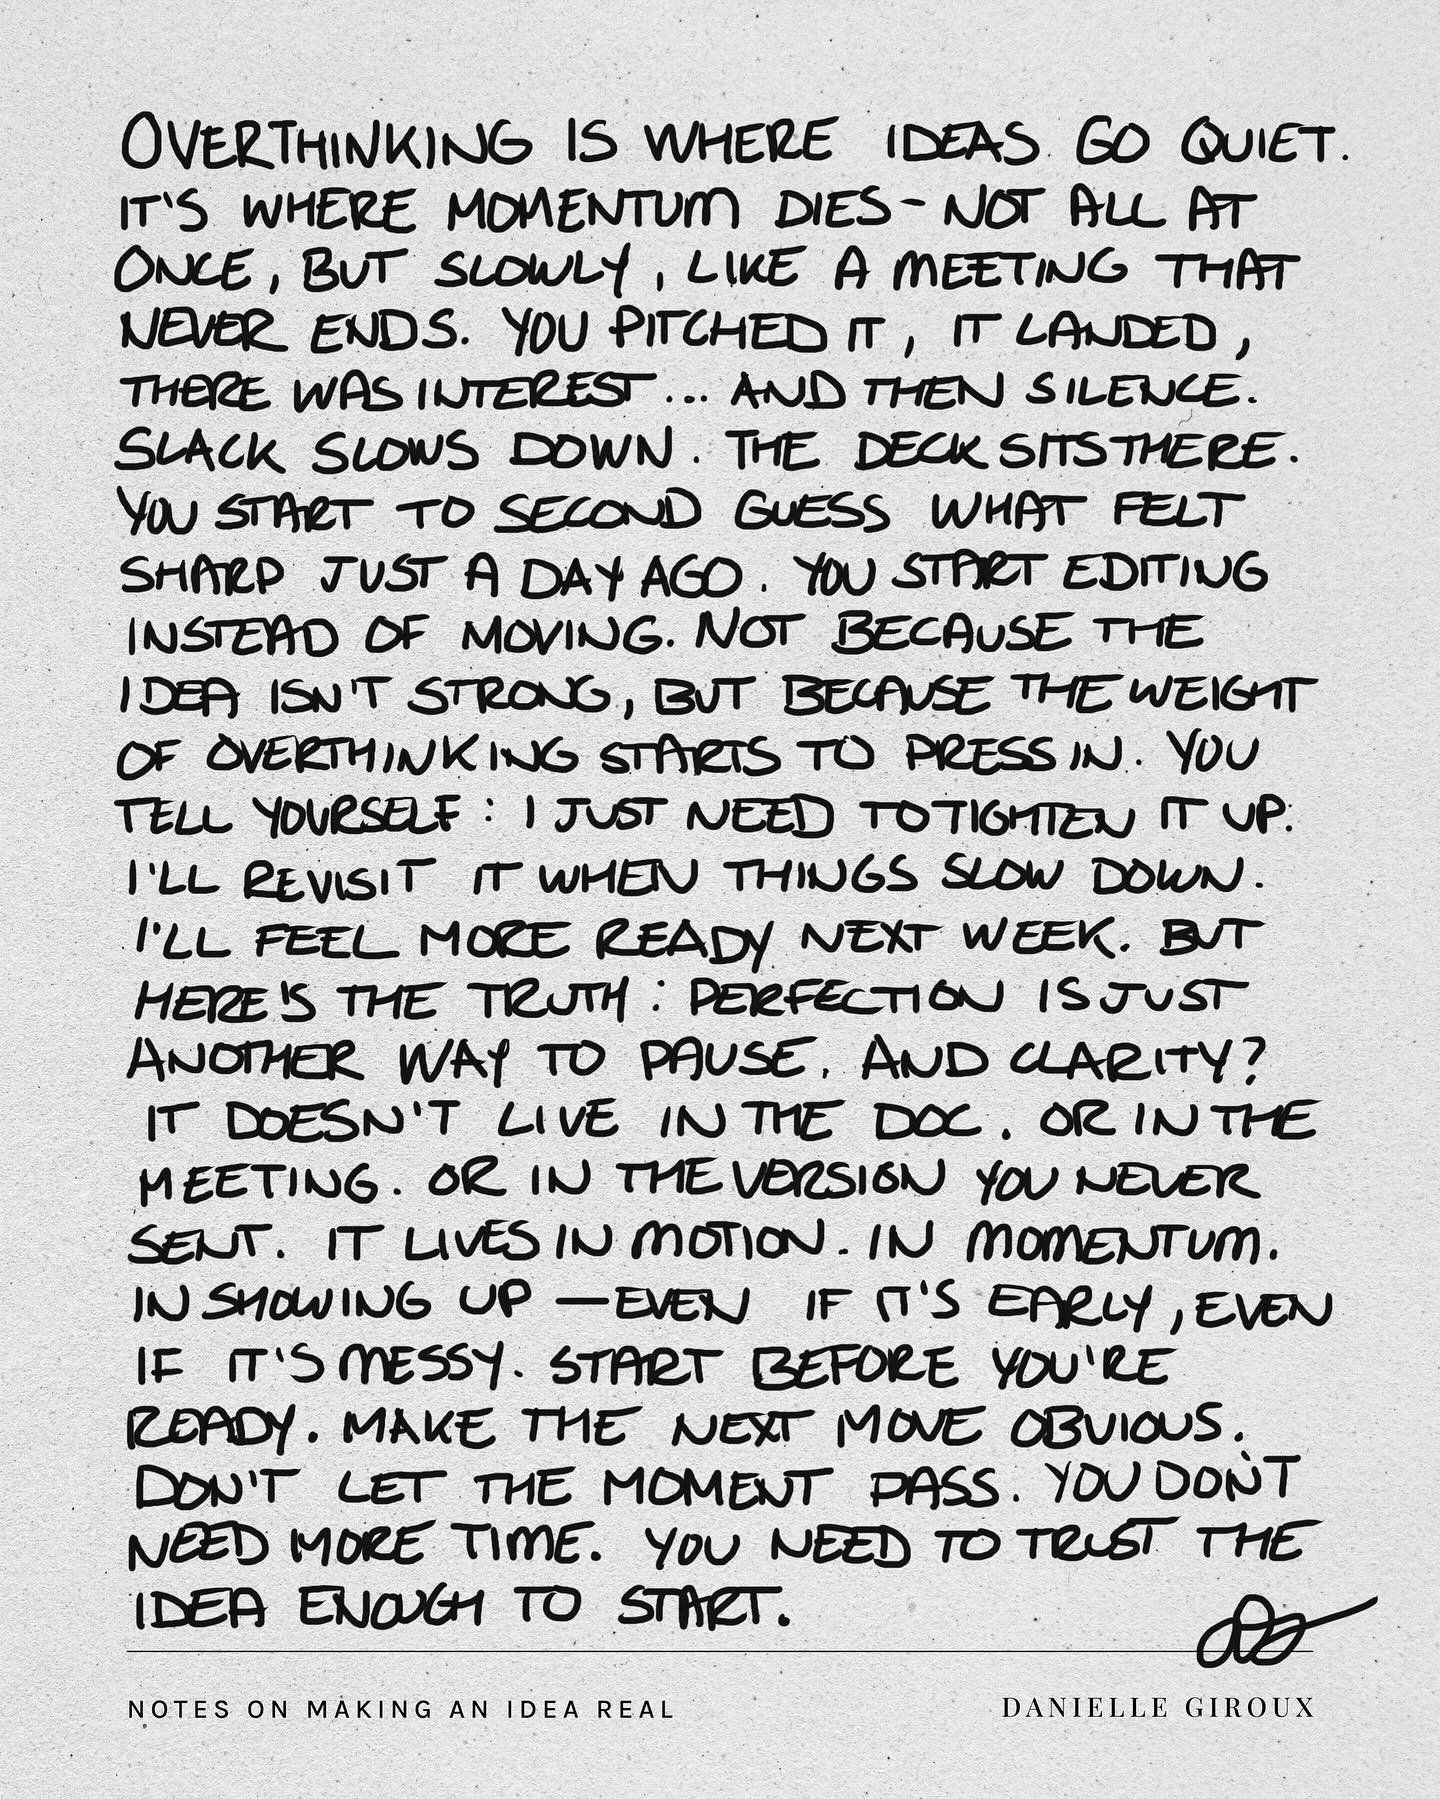 OVERTHINKING IS WHERE IDEAS GO QUIET.
IT'S WHERE MOMENTUM DIES - NOT ALL AT
ONCE, BUT SLOWLY, LIKE A MEETING THAT
NEVER ENDS. YOU PITCHED IT, IT LANDED,
THERE WAS INTEREST... AND THEN SILENCE.
SLACK SLOWS DOWN. THE DECK SITS THERE.
YOU START TO SECOND GUESS WHAT FELT
SHARP JUST A DAY AGO. YOU START EDITING
INSTEAD OF MOVING. NOT BECAUSE THE
IDEA ISN'T STRONG, BUT BECAUSE THE WEIGHT
OF OVERTHINKING STARTS TO PRESS IN. YOU
TELL YOURSELF: I JUST NEED TO TIGHTEN IT UP.
I'LL REVISIT IT WHEN THINGS SLOW DOWN.
I'LL FEEL MORE READY NEXT WEEK. BUT
HERE'S THE TRUTH: PERFECTION IS JUST
ANOTHER WAY TO PAUSE. AND CLARITY?
IT DOESN'T LIVE IN THE DOC. OR IN THE
MEETING. OR IN THE VERSION YOU NEVER
SENT. IT LIVES IN MOTION. IN MOMENTUM.
IN SHOWING UP — EVEN IF IT'S EARLY, EVEN
IF IT'S MESSY. START BEFORE YOU'RE
READY. MAKE THE NEXT MOVE OBVIOUS.
DON'T LET THE MOMENT PASS. YOU DON'T
NEED MORE TIME. YOU NEED TO TRUST THE
IDEA ENOUGH TO START.
NOTES ON MAKING AN IDEA REAL
DANIELLE GIROUX